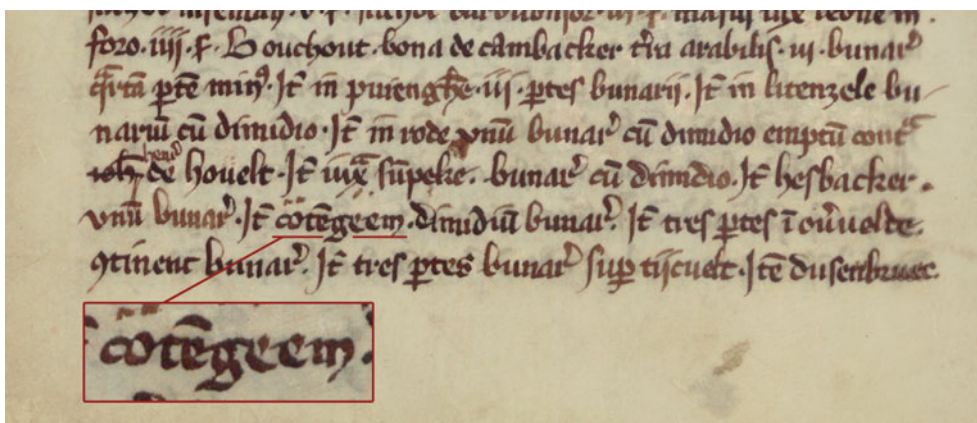 foro . iiij . ꝑ . Bouchout . bona de cambacker t̄ra arabilis . iij . bunar̉
q̄rtā ꝑtē min⁹ . It̄ in puienghe . iij . ꝑtes bunarii . It̄ in litenzele bu
nariū cū dimidio . It̄ in rode vnū bunar̉ cū dimidio emptū cont̄
de houelt . It̄ iuxͣ sūpeke . bunar̉ cū dimidio . It̄ hesbacker .
vnū bunar̉ . It̄ cōtēgeem . dimidiū bunar̉ . It̄ tres ꝑtes ī oūuelde .
ꝯtinent bunar̉ . It̄ tres ꝑtes bunar̉ suꝑ tijcuelt . Itē dusentbruec
cōtēgeem .